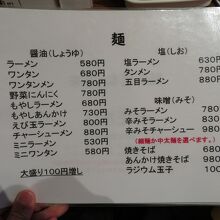 麺
醤油(しょうゆ)
ラーメン 580円
ワンタン 580円
ワンタンメン 780円
野菜にんにく 780円
もやしラーメン 680円
もやしあんかけ 730円
えび玉ラーメン 800円
チャーシューメン 880円
ミニラーメン 530円
ミニワンタン 580円
大盛り100円増し
塩(しお)
塩ラーメン 630
タンメン 780
五目ラーメン 880
味噌(みそ)
みそラーメン 780
辛みそラーメン 880
辛みそチャーシュー 980
(細麺か中太麺を選べます。)
焼きそば 680
あんかけ焼きそば 980
ラジウム玉子 100